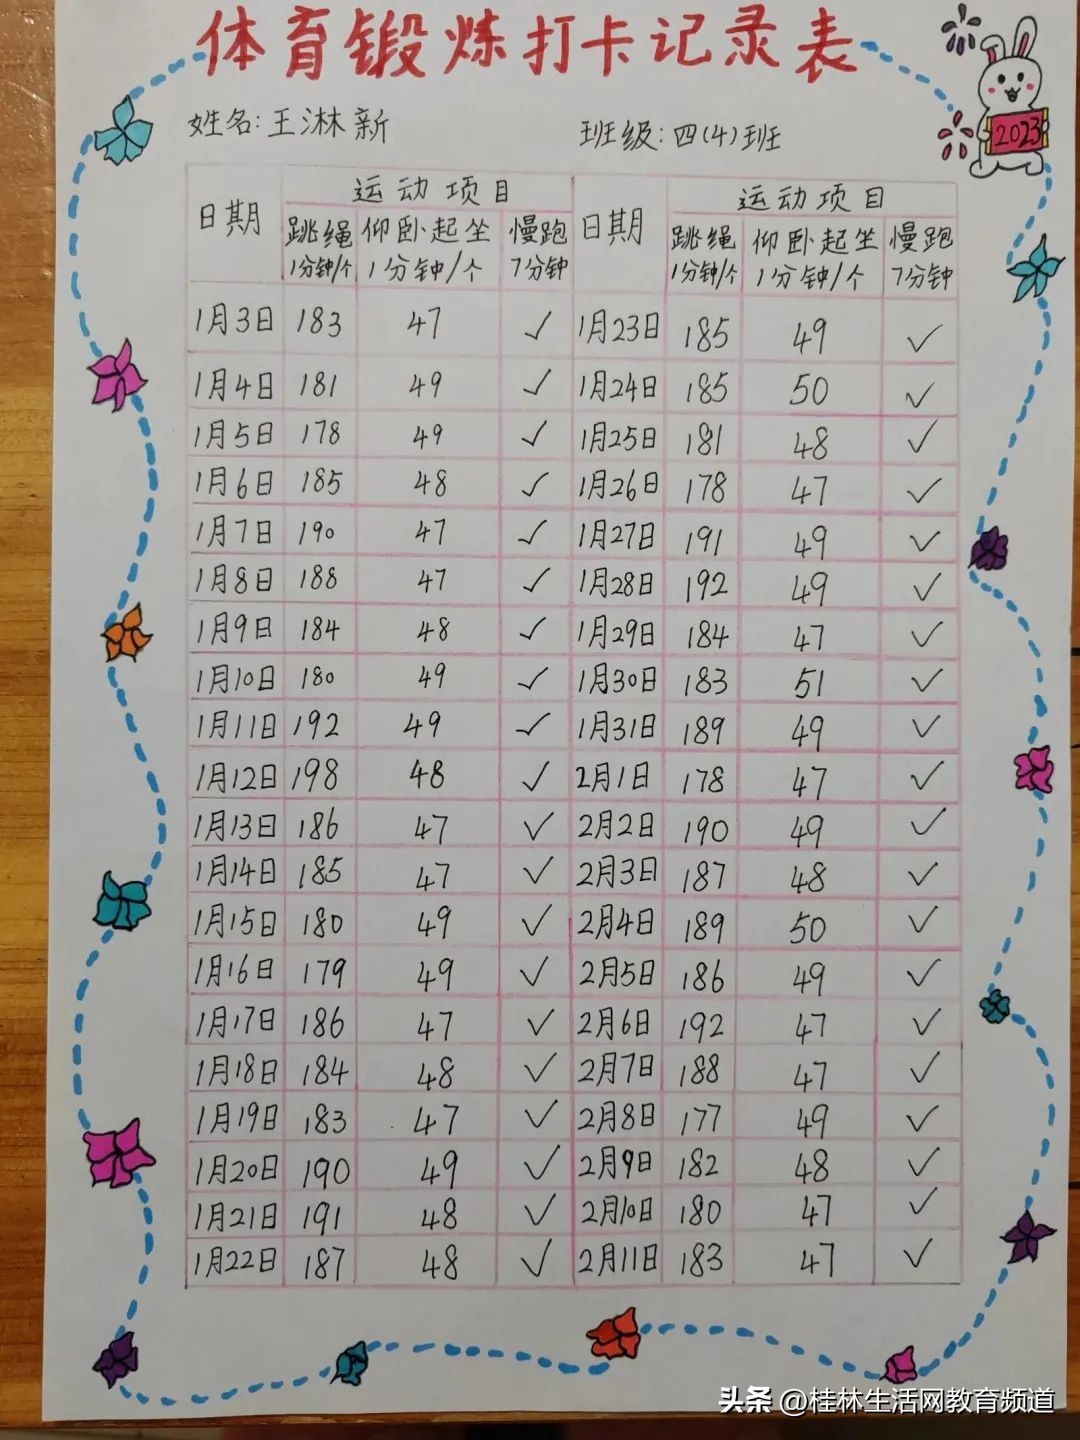 体育锻炼打卡记录表
2023
姓名:王淋新 班级:四(4)班
日期 运动项目 日期 运动项目
跳绳 仰卧起坐 慢跑 跳绳 仰卧起坐 慢跑
1分钟/个 1分钟/个 7分钟 1分钟/个 1分钟/个 7分钟
1月3日 183 47 ✓ 1月23日 185 49 ✓
1月4日 181 49 ✓ 1月24日 185 50 ✓
1月5日 178 49 ✓ 1月25日 181 48 ✓
1月6日 185 48 ✓ 1月26日 178 47 ✓
1月7日 190 47 ✓ 1月27日 191 49 ✓
1月8日 188 47 ✓ 1月28日 192 49 ✓
1月9日 184 48 ✓ 1月29日 184 47 ✓
1月10日 180 49 ✓ 1月30日 183 51 ✓
1月11日 192 49 ✓ 1月31日 189 49 ✓
1月12日 198 48 ✓ 2月1日 178 47 ✓
1月13日 186 47 ✓ 2月2日 190 49 ✓
1月14日 185 47 ✓ 2月3日 187 48 ✓
1月15日 180 49 ✓ 2月4日 189 50 ✓
1月16日 179 49 ✓ 2月5日 186 49 ✓
1月17日 186 47 ✓ 2月6日 192 47 ✓
1月18日 184 48 ✓ 2月7日 188 47 ✓
1月19日 183 47 ✓ 2月8日 177 49 ✓
1月20日 190 49 ✓ 2月9日 182 48 ✓
1月21日 191 48 ✓ 2月10日 180 47 ✓
1月22日 187 48 ✓ 2月11日 183 47 ✓
头条 @桂林生活网教育频道